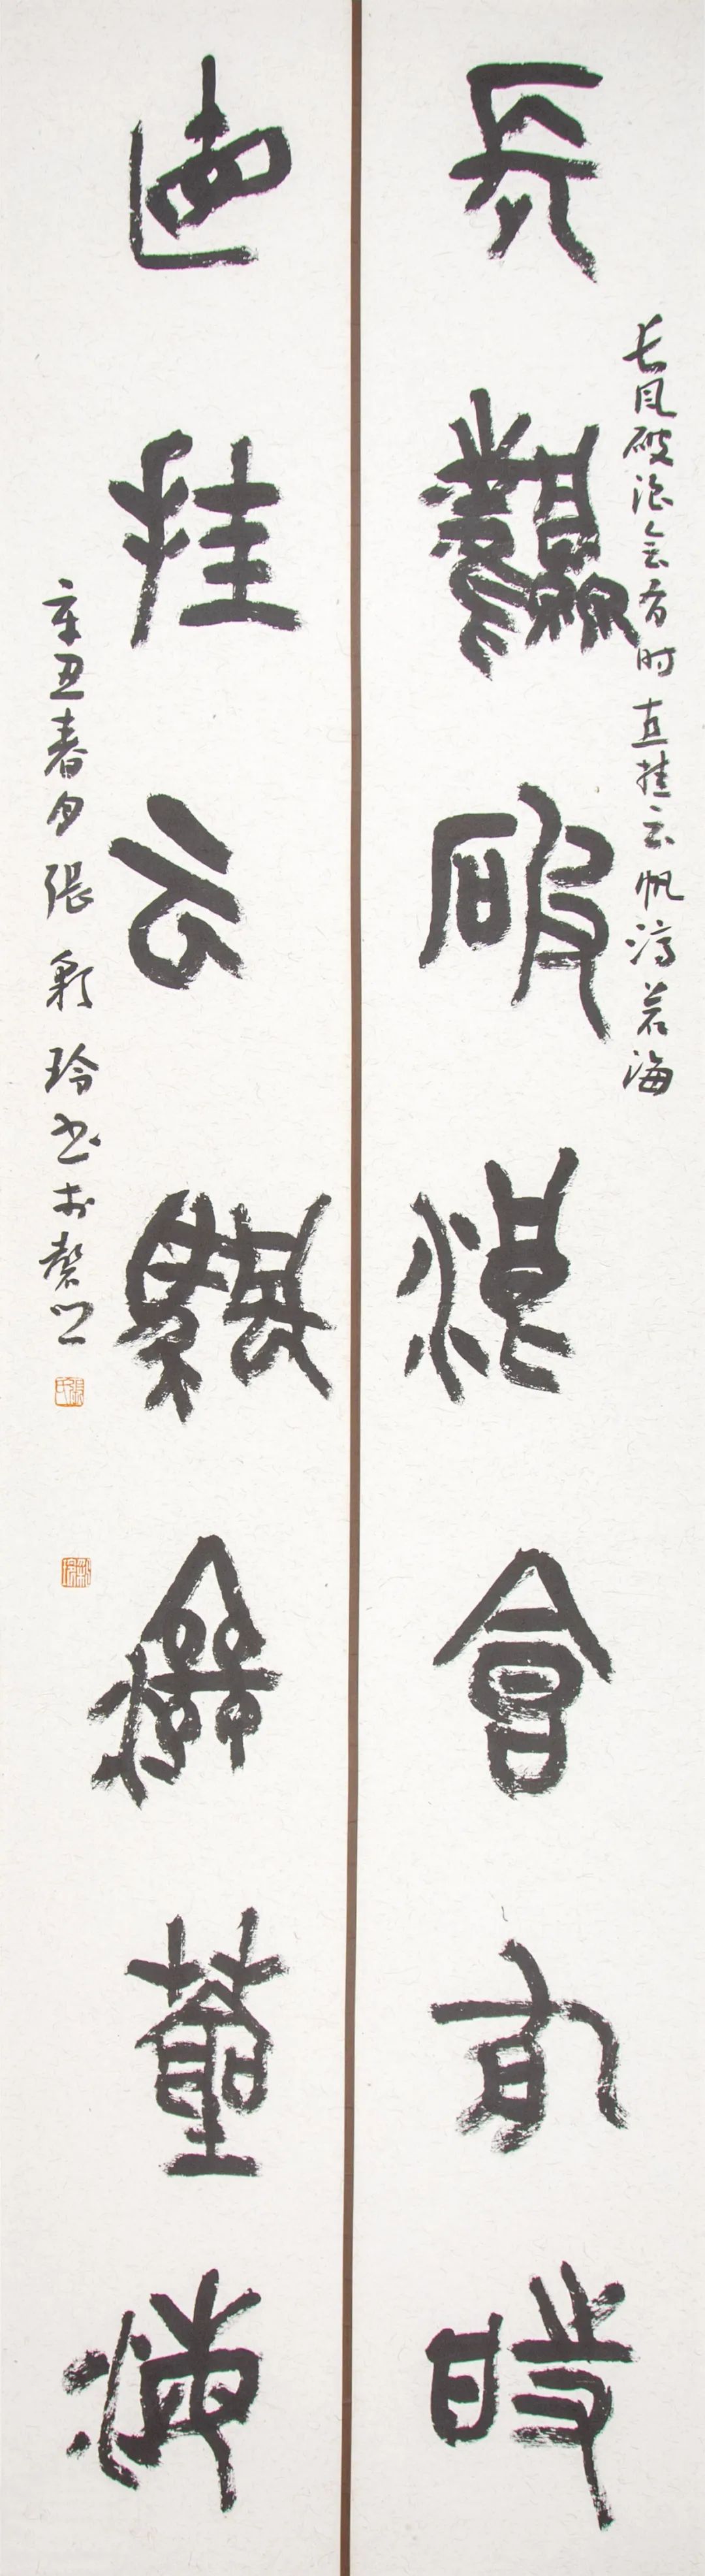 長風破浪會有時
长风破浪会有时直挂云帆济苍海
直挂云帆濟蒼海
辛丑春月張彩玲书於